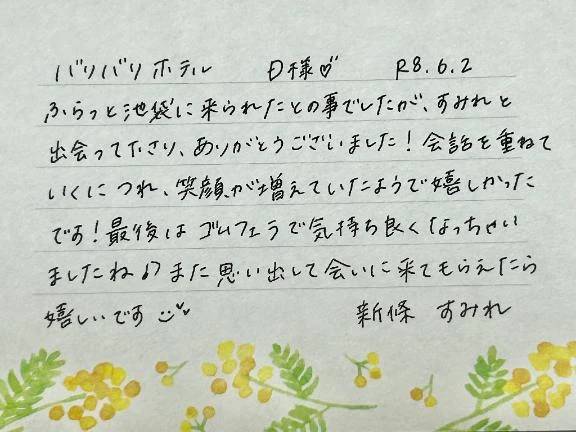 バリバリホテル D様♡ R8.6.2
ふらっと池袋に来られたとの事でしたが、すみれと
出会って下さり、ありがとうございました！会話を重ねて
いくにつれ、笑顔が増えていたようで嬉しかった
です！最後はゴムフェラで気持ち良くなっちゃい
ましたね♪また思い出して会いに来てもらえたら
嬉しいです 新條 すみれ